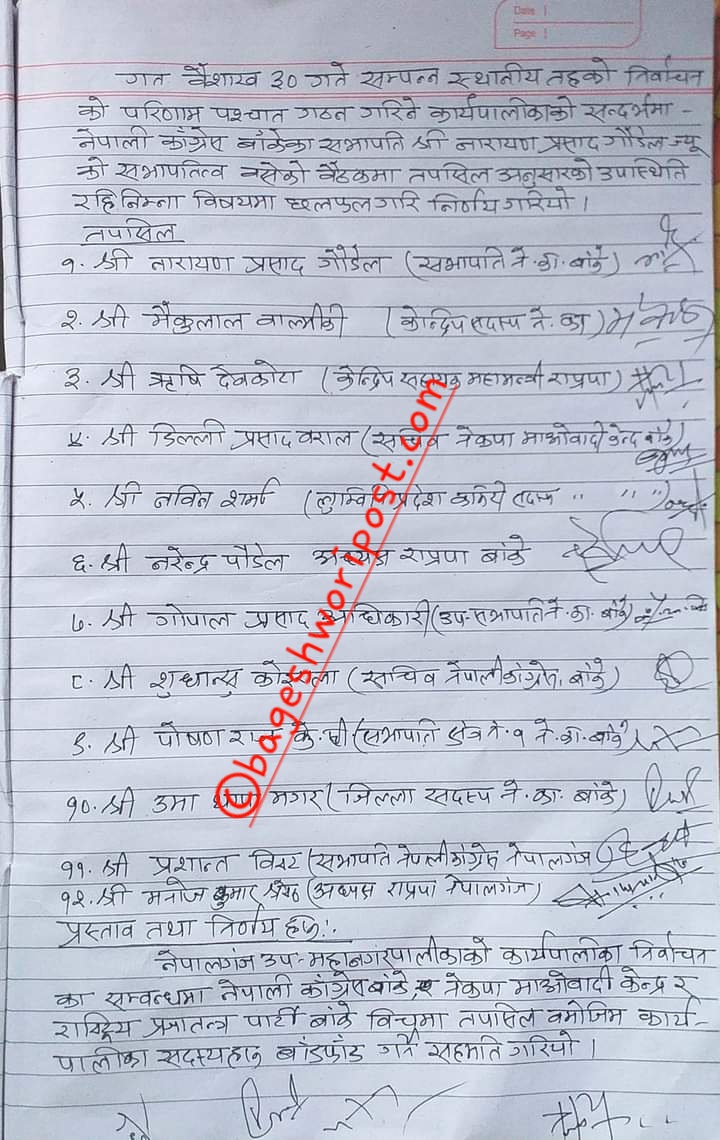 Date
Page
गत बैशाख ३० गते सम्पन्न स्थानीय तहको निर्वाचन
को परिणाम पश्चात गठन गरिने कार्यपालीकाको सन्दर्भमा -
नेपाली काँग्रेस बाँकेका सभापति श्री नारायण प्रसाद गौडेल ज्यू
को सभापतित्व बसेको बैठकमा तपसिल अनुसारको उपस्थिति
रहि निम्न विषयमा छलफल गरि निर्णय गरियो ।
तपासिल
१. श्री नारायण प्रसाद गौडेल (सभापति ने.का. बाँके)
२. श्री मैकुलाल वाल्मीकी (केन्द्रिय सदस्य ने. का)
३. श्री ऋषि देवकोटा (केन्द्रिय सहायक महामन्त्री राप्रपा)
४. श्री डिल्ली प्रसाद वराल (सचिव नेकपा माओवादी केन्द्र बाँके)
५. श्री नविन शर्मा (लुम्बिनि प्रदेश कमिटी सदस्य " " ")
६. श्री नरेन्द्र पौडेल अध्यक्ष राप्रपा बाँके
७. श्री गोपाल प्रसाद अधिकारी (उप-सभापति ने.का. बाँके)
८. श्री शुधान्सु कोइराला (सचिव नेपाली काँग्रेस, बाँके)
९. श्री पोषण राज के. सी (सभापति क्षेत्र नं. १ ने.का. बाँके)
१०. श्री उमा थापा मगर (जिल्ला सदस्य ने. का. बाँके)
११. श्री प्रशान्त विष्ट (सभापति नेपाली काँग्रेस नेपालगंज
१२. श्री मनोज कुमार श्रेष्ठ (अध्यक्ष राप्रपा नेपालगंज)
प्रस्ताव तथा निर्णय हरु :
नेपालगंज उप-महानगरपालीकाको कार्यपालीका निर्वाचन
का सम्वन्धमा नेपाली काँग्रेस बाँके, नेकपा माओवादी केन्द्र र
राष्ट्रिय प्रजातन्त्र पार्टी बाँके विचमा तपासिल वमोजिम कार्य-
पालीका सदस्यहरु बाँडफाँड गर्ने सहमति गरियो ।
©bageshworipost.com